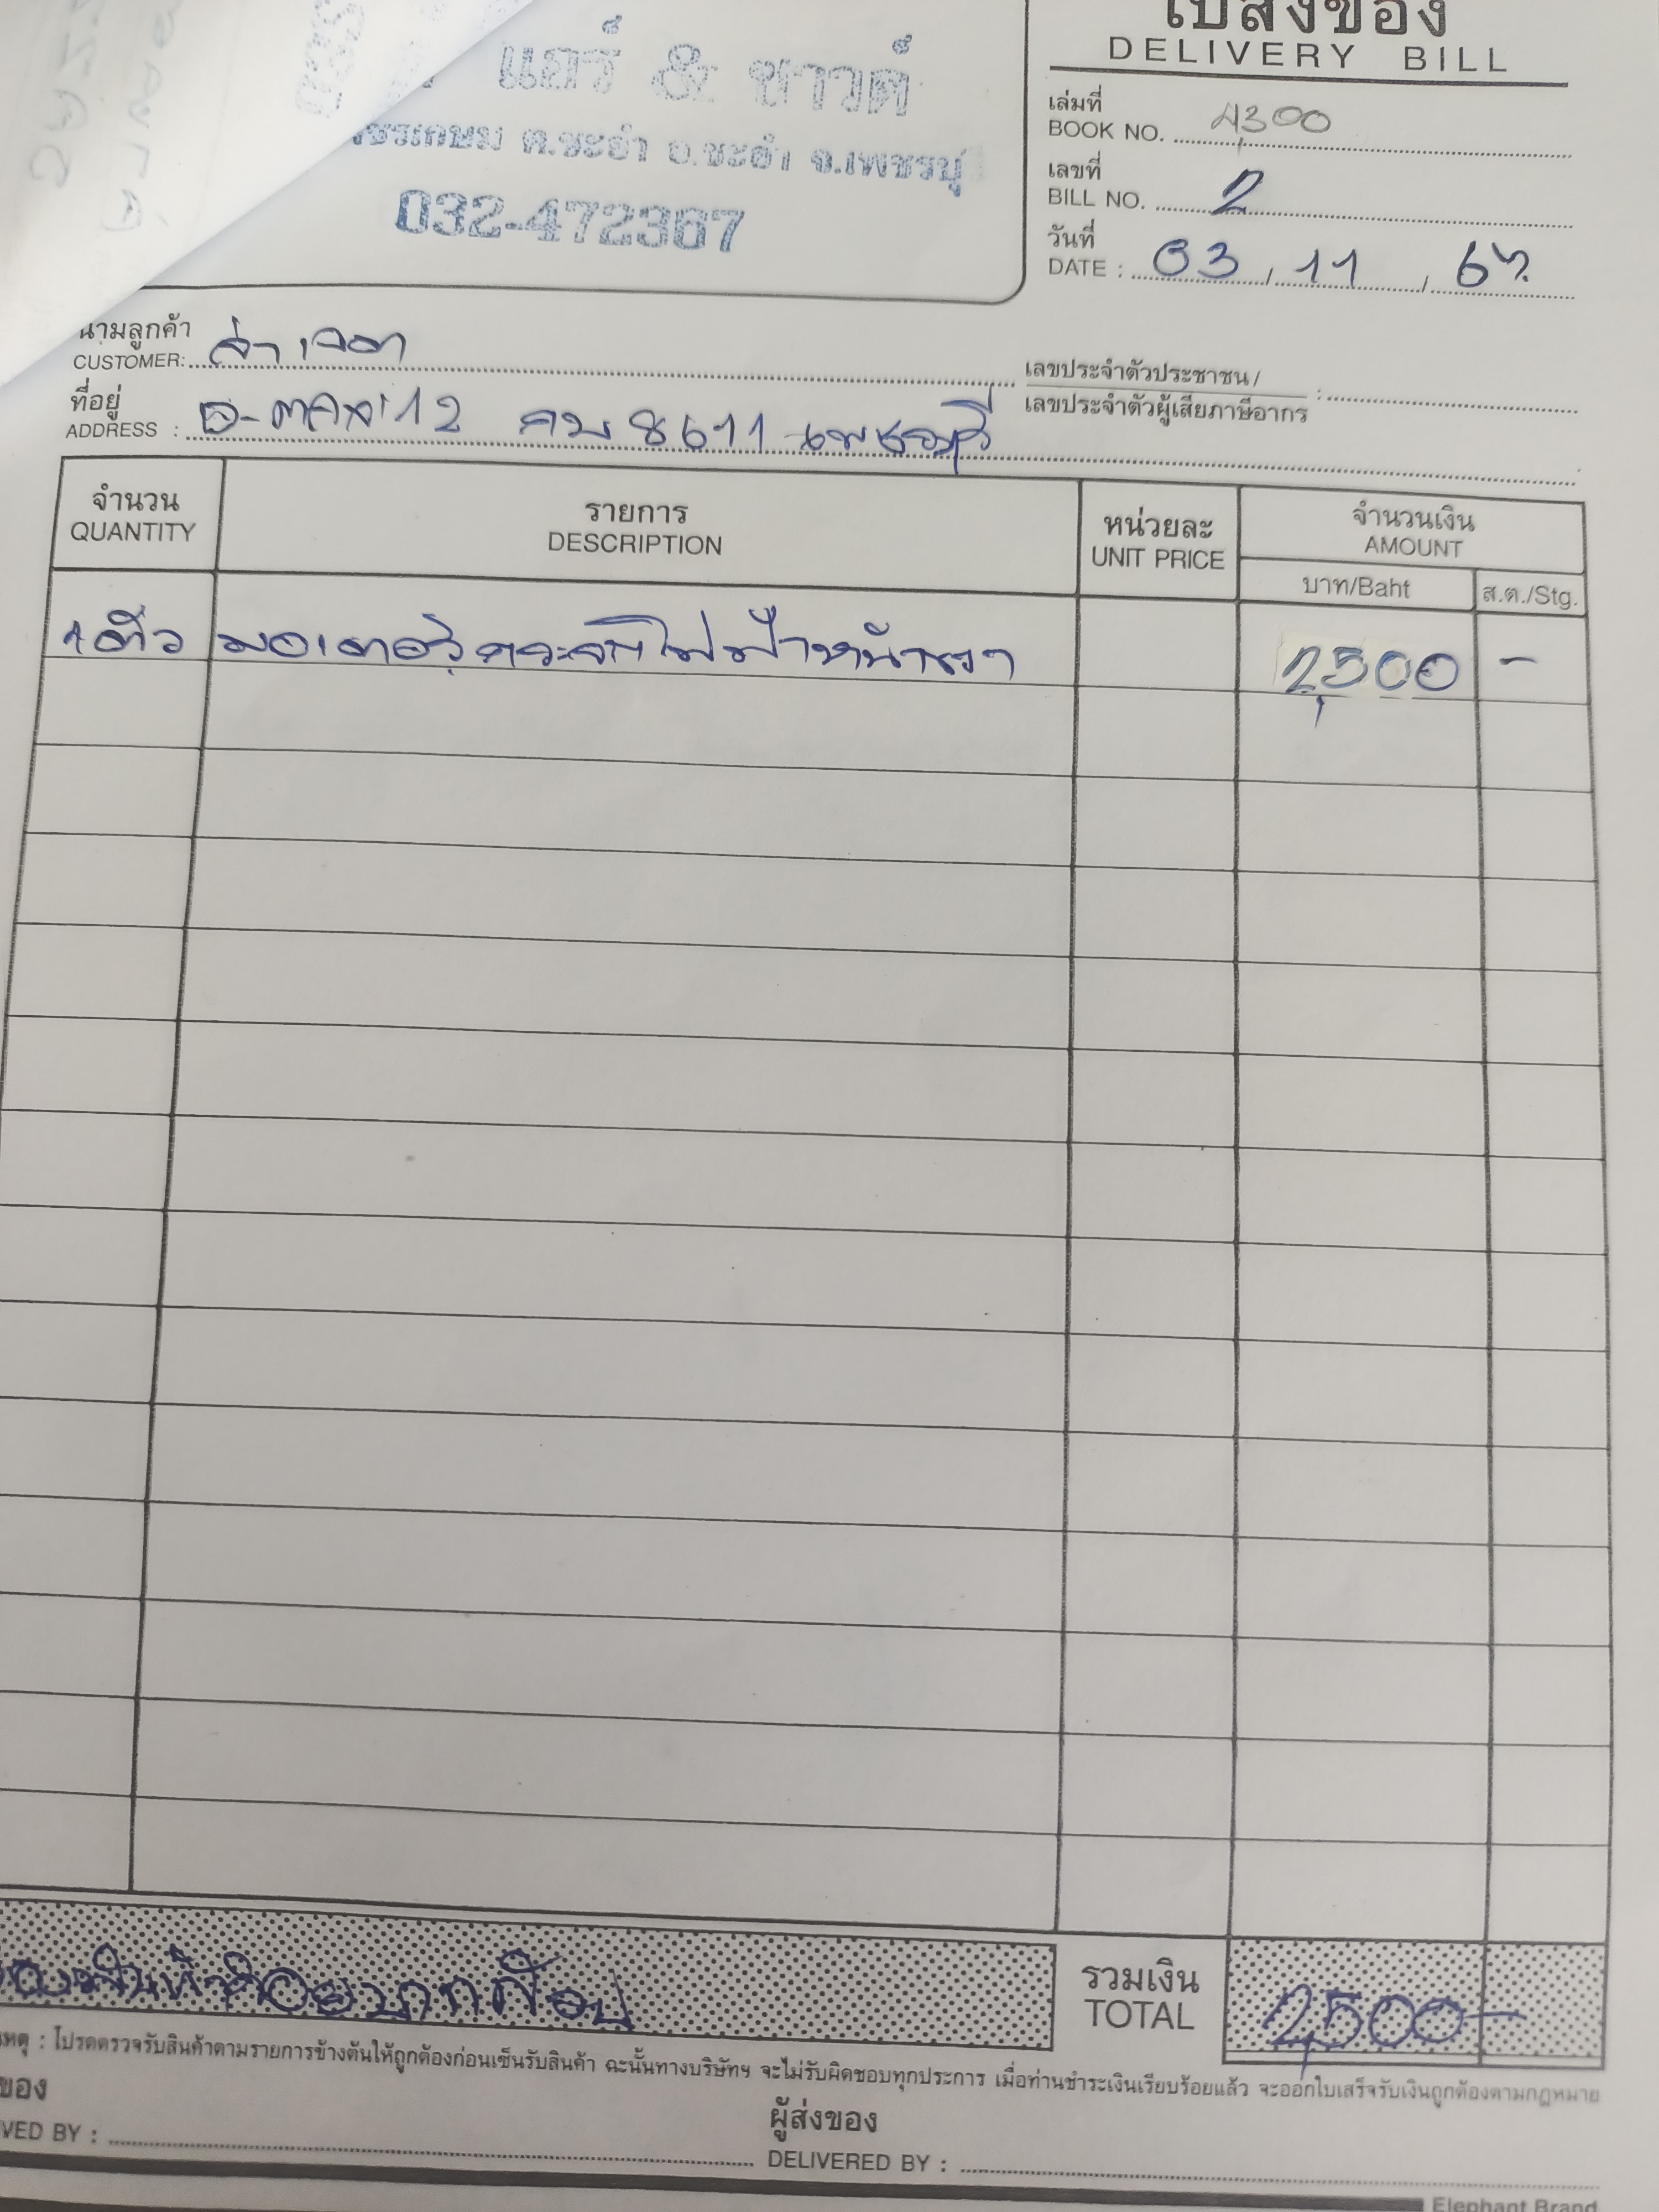 ใบส่งของ
DELIVERY BILL
แอร์ & ซาวด์
ต.ชะอำ อ.ชะอำ จ.เพชรบุรี
032-472367
เล่มที่
BOOK NO. 4300
เลขที่
BILL NO. 2
วันที่
DATE : 03 / 11 / 67
นามลูกค้า
CUSTOMER:
ที่อยู่
ADDRESS : 8611 เพชรบุรี
เลขประจำตัวประชาชน /
เลขประจำตัวผู้เสียภาษีอากร :
จำนวน รายการ หน่วยละ จำนวนเงิน
QUANTITY DESCRIPTION UNIT PRICE AMOUNT
บาท/Baht ส.ต./Stg.
1 ตัว มอเตอร์กระจกไฟฟ้าหน้าขวา 2,500 -
สองพันห้าร้อยบาทถ้วน
รวมเงิน
TOTAL 2,500 -
เหตุ : โปรดตรวจรับสินค้าตามรายการข้างต้นให้ถูกต้องก่อนเซ็นรับสินค้า ฉะนั้นทางบริษัทฯ จะไม่รับผิดชอบทุกประการ เมื่อท่านชำระเงินเรียบร้อยแล้ว จะออกใบเสร็จรับเงินถูกต้องตามกฎหมาย
ของ
VED BY :
ผู้ส่งของ
DELIVERED BY :
Elephant Brand